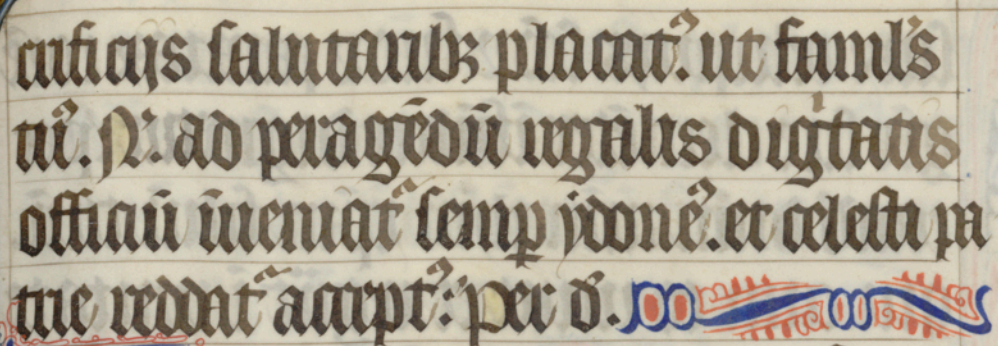 crificijs salutaribꝫ placatꝰ. ut famul's
tuꝰ. N. ad peragēdū regalis digͥtatis
officiū īueniat᷑ semꝑ ydoneꝰ. et celesti pa
trie reddat᷑ acceptꝰ: Per d̄.